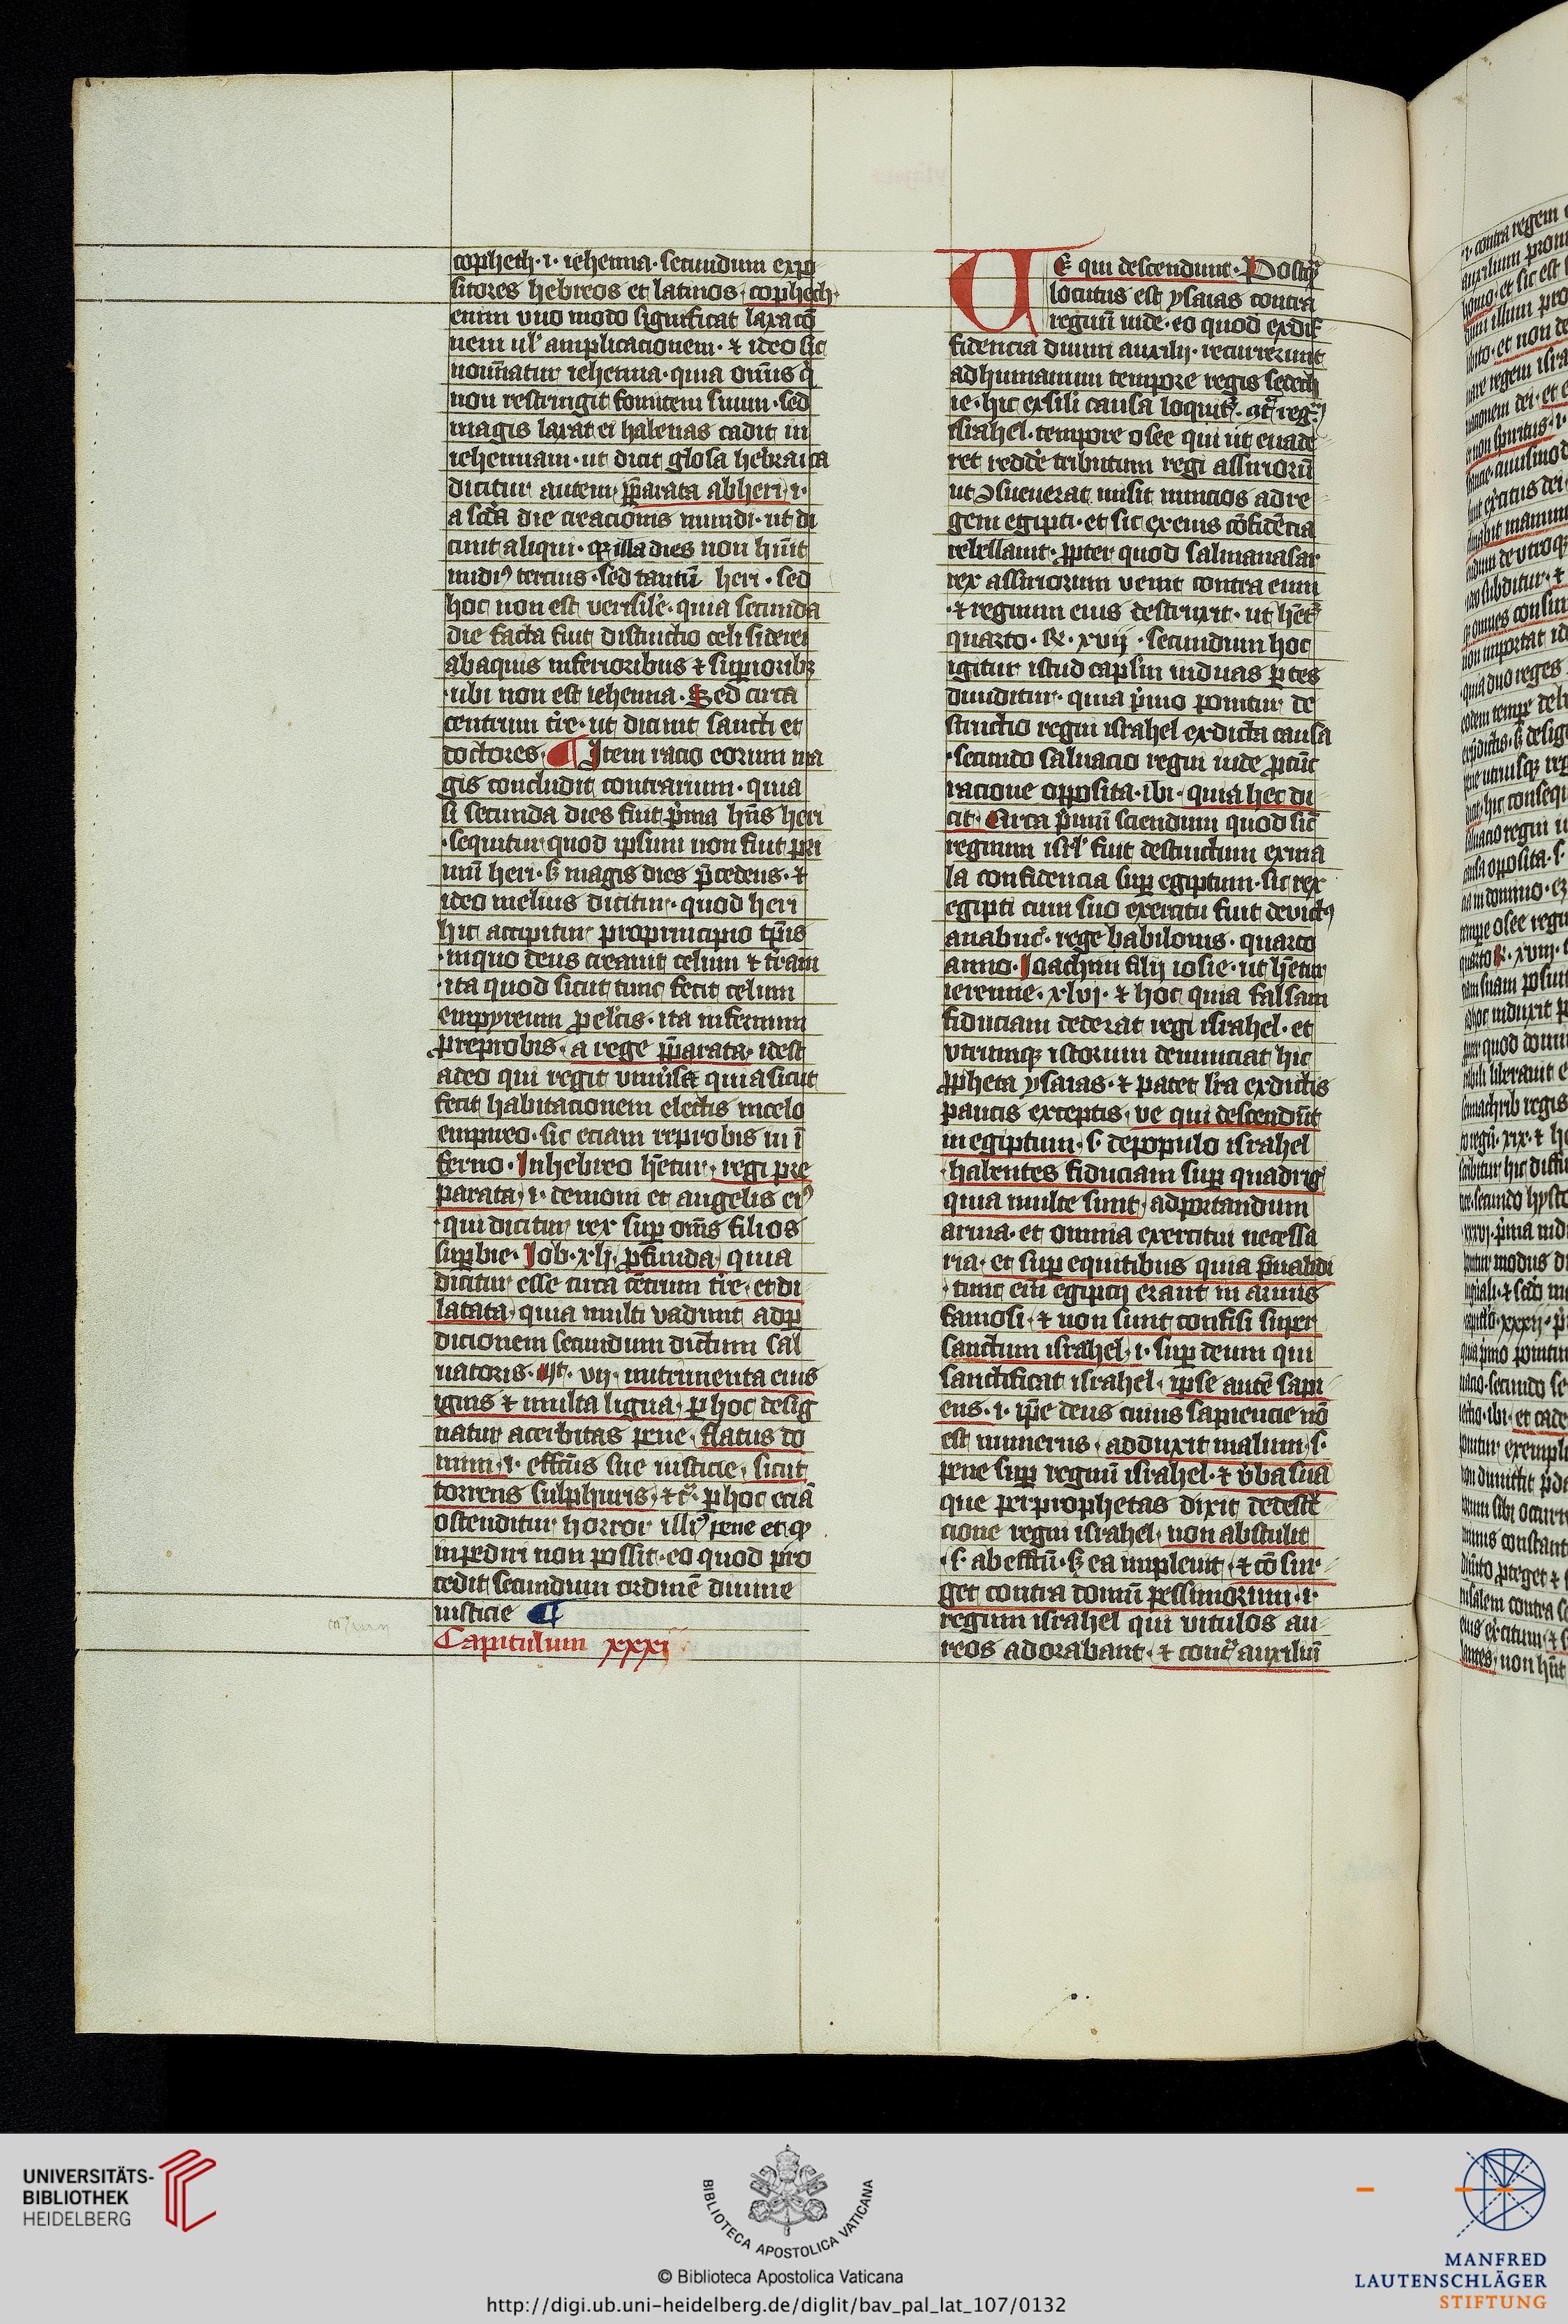 topheth · i · iehenna · secundum expo
sitores hebreos et latinos · topheth ·
enim vno modo significat laxatō
nem ul' amplicacionem · ⁊ ideo sic
nomīatur iehenna · quia om̄is q̇
non restringit fomitem suum · sed
magis laxat ei habenas cadit in
iehennam · ut dicit glosa hebraica
dicitur autem p̄parata abheri · i ·
a scđa die creacionis mundi · ut di
cunt aliqui · qꝫ illa dies non hūit
nudiꝰ tercius · sed tantū heri · sed
hoc non est verisil'e · quia secunda
die facta fuit distinctio celi siderei
abaquis inferioribus ⁊ supioribꝫ
· ubi non est iehenna · Sed circa
centrum tr̄e · ut dicunt sancti et
doctores · ¶ Item racio eorum ma
gis concludit contrarium · quia
si secunda dies fuit p̄ma hn̄s heri
· sequitur quod ipsum non fuit pri
mū heri · sꝫ magis dies p̄cedens · ⁊
ideo melius dicitur · quod heri
hic accipitur proprincipio tp̄is
· inquo deus creauit celum ⁊ tr̄am
· ita quod sicut tunc fecit celum
empyreum ꝓ elc̄is · ita infernum
ꝓreprobis · a rege p̄parata · idest
adeo qui regit vniuʼsa quiasicut
fecit habitacionem electis incelo
empireo · sic eciam reprobis in ī
ferno · Inhebreo hētur · regi pre
parata · i · demoni et angelis eiꝰ
· qui dicitur rex suꝑ om̄s filios
suꝑbie · Iob · xlj · ꝓfūnda · quia
dicitur esse circa cētrum tr̄e · et di
latata · quia multi vadunt adꝑ
dicionem secundum dictum sal
uatoris · Mt̄ · vij · nutrimenta eius
ignis ⁊ multa ligna · ꝑ hoc desig
natur acerbitas pene · flatus do
mini · i · effc̄us sue iusticie · sicut
torrens sulphuris · ⁊c̄ · ꝑ hoc eciā
ostenditur horror illiꝰ pene et qꝫ
inpediri non possit · eo quod pro
cedit secundum ordinē diuine
iusticie ¶
Capitulum xxxi
Ue qui descendunt · Postq̄
locutus est ysaias contra
regnū iude · eo quod exdif
fidencia diuini auxilij · recurrerunt
ad humanum tempore regis sedech
ie · hic exsili causa loquitʳ · 9t̄ regꝫ
israhel · tempore osee qui ut euade
ret redde tributum regi assiriorū
ut 9sueuerat misit nuncios ad re
gem egipti · et sic exeius 9fidēcia
rebellauit · ꝓpter quod salmanasar
rex assiriorum venit contra eum
· ⁊ regnum eius destruxit · ut hētʳ
quarto · R · xvij · secundum hoc
igitur istud caplm induas ꝑtes
diuiditur · quia p̄mo ponitur de
structio regni israhel exdicta causa
· secundo saluacio regni iude ꝓcūc
racione opposita · ibi · quia hec di
cit · Circa p̄mū sciendum quod sic̄
regnum isrl' fuit destructum exma
la confidencia suꝑ egiptum · sic rex
egipti cum suo exercitu fuit deuictꝰ
anabuc̄ · rege babilonis · quarto
anno · Ioachim filij iosie · ut hētur
ieremie · xlvj · ⁊ hoc quia falsam
fiduciam dederat regi israhel · et
vtrumqꝫ istorum denunciat hic
ꝓpheta ysaias · ⁊ patet lr̄a exdictis
paucis exceptis · ve qui descendūt
in egiptum · s · depopulo israhel
· habentes fiduciam suꝑ quadrigʳ
quia multe sunt · adportandum
arma · et omnia exercitui necessa
ria · et suꝑ equitibus quia p̄ualidi
· tunc eni egiptij erant in armis
famosi · ⁊ non sunt confisi super
sanctum israhel · i · suꝑ deum qui
sanctificat israhel · ipse autē sapi
ens · i · ip̄e deus cuius sapiencie nō
est numerus · adduxit malum · s ·
pene suꝑ regnū israhel · ⁊ v̄ba sua
que perprophetas dixit dedestr̄
cione regni israhel · non abstulit
· s · ab effc̄u · sꝫ ea impleuit · ⁊ 9sur
get contra domū pessimorum · i ·
regnum israhel qui vitulos au
reos adorabant · ⁊ contʳ auxiliū
UNIVERSITÄTS-
BIBLIOTHEK
HEIDELBERG
BIBLIOTECA APOSTOLICA VATICANA
© Biblioteca Apostolica Vaticana
http://digi.ub.uni-heidelberg.de/diglit/bav_pal_lat_107/0132
MANFRED
LAUTENSCHLÄGER
STIFTUNG